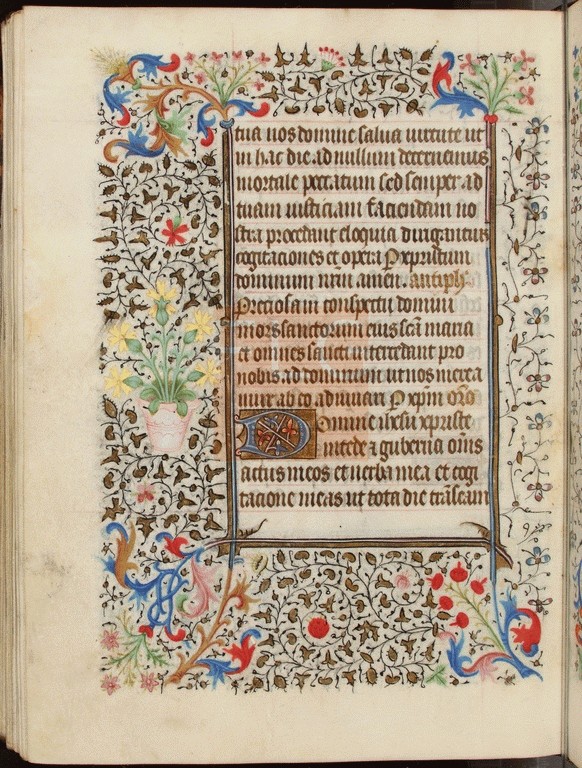 tua nos domine salua uirtute ut
in hac die ad nullum decernemus
mortale peccatum sed semper ad
tuam iusticiam faciendam no
stra procedant eloquia dirigantur
cogitaciones et opera Per xpristum
dominum nrm amen. antiph̄
Preciosa in conspectu domini
mors sanctorum eius scā maria
et omnes sancti intercedant pro
nobis ad dominum ut nos merea
mur ab eo adiuuari Per xpm or̄o
Domine ihesu xpriste
intede & guberna om̄is
actus meos et uerba mea et cogi
taciones meas ut tota die trāseam